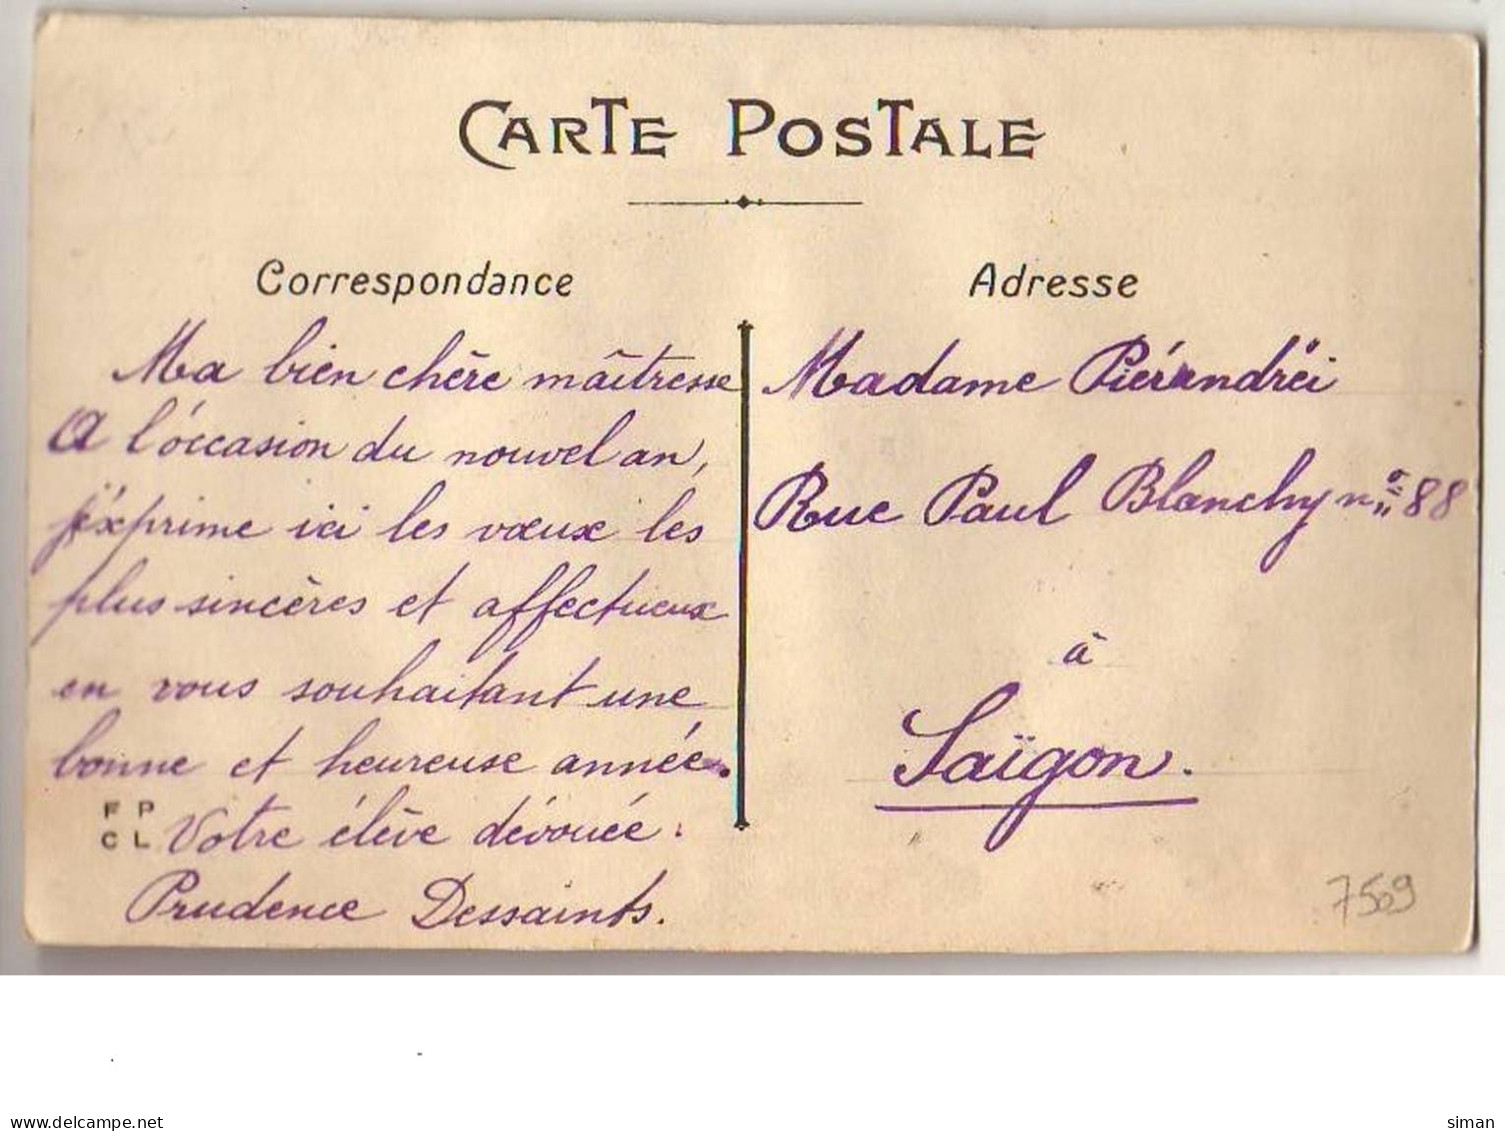 CARTE POSTALE
Correspondance
Ma bien chère maîtresse
A l'occasion du nouvel an,
j'exprime ici les vœux les
plus sincères et affectueux
en vous souhaitant une
bonne et heureuse année.
F P
C L
Votre élève dévouée :
Prudence Dessaints.
Adresse
Madame Piérandréi
Rue Paul Blanchy nº 88
à
Saïgon.
7509
www.delcampe.net
siman